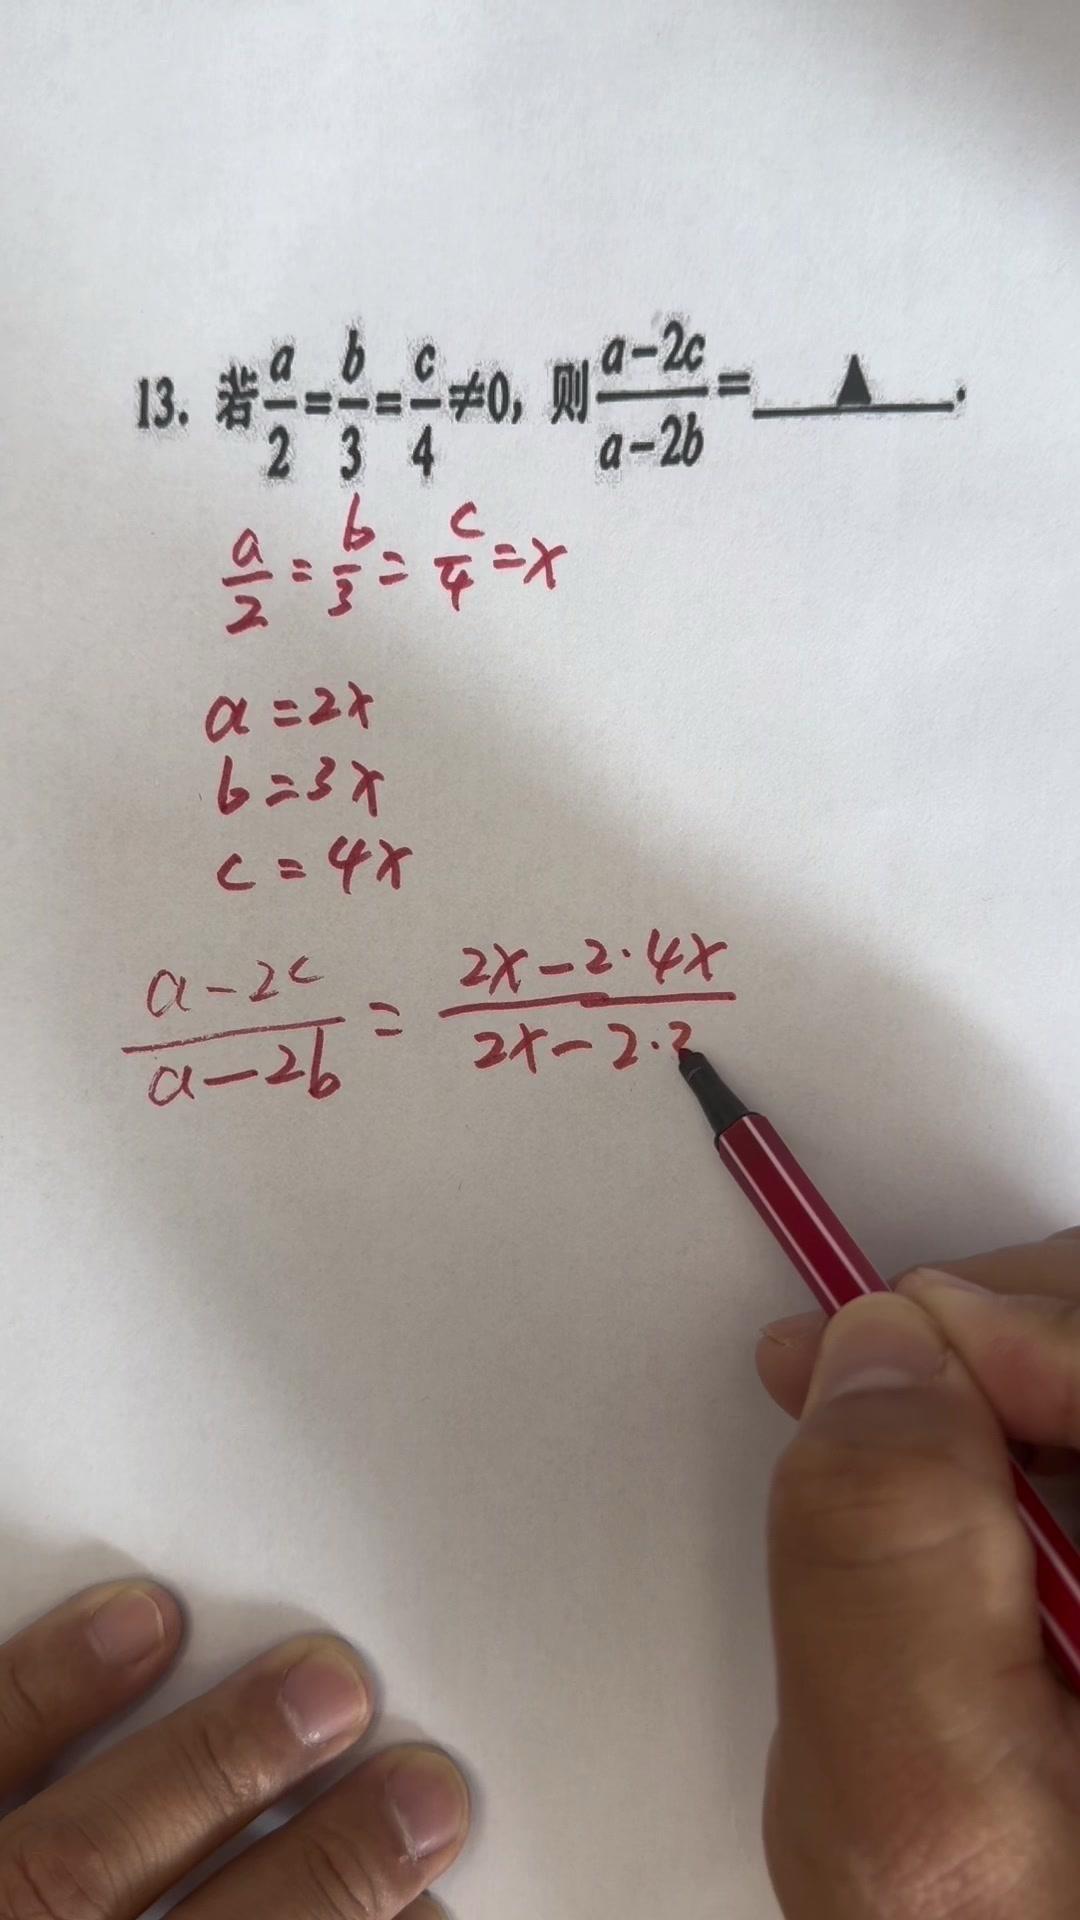 13. 若a/2=b/3=c/4≠0, 则(a-2c)/(a-2b)=____▲____.
a/2=b/3=c/4=x
a=2x
b=3x
c=4x
(a-2c)/(a-2b)=(2x-2·4x)/(2x-2·